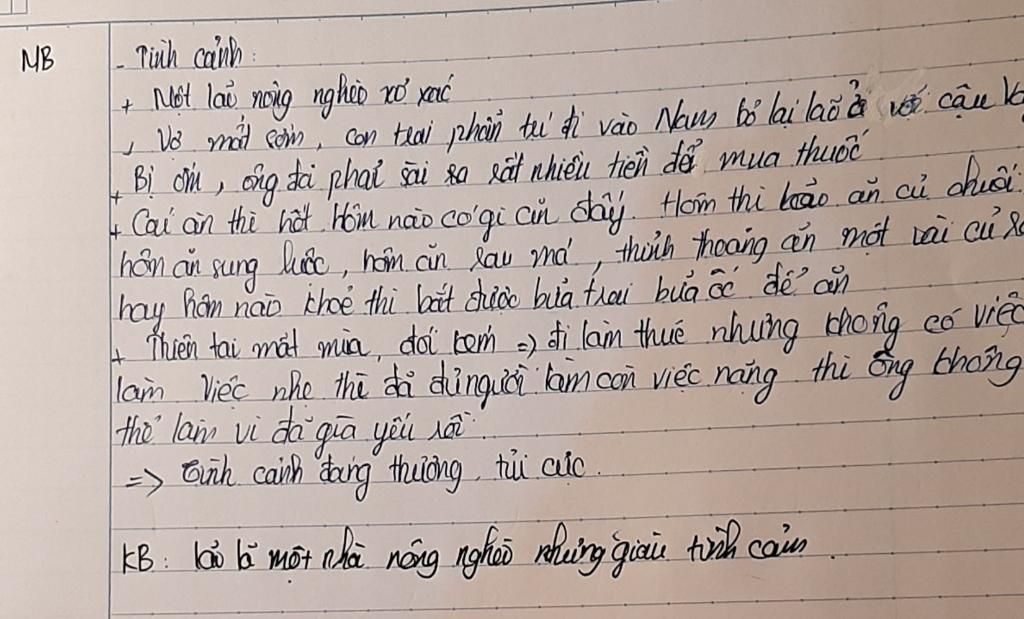 MB
- Tình cảnh:
+ Một lão nông nghèo xơ xác
+ Vợ mất sớm, con trai phẫn tú đi vào Nam bỏ lại lão ở với cậu V
+ Bị ốm, ông đã phải sài ra rất nhiều tiền để mua thuốc
+ Cái ăn thì hôt. Hôm nào có gì ăn đấy. Hôm thì lão ăn củ chuối
hôm ăn sung luộc, hôm ăn rau má, thỉnh thoảng ăn một vài củ
hay hôm nào khoẻ thì bắt được bữa trai bữa ốc để ăn
+ Thiên tai mất mùa, đói kém => đi làm thuê nhưng không có việc
làm việc nhẹ thì đã đủ người làm còn việc nặng thì ông không
thể làm vì đã già yếu rồi.
=> tình cảnh đáng thương, tủi cực.
KB: lão là một nhà nông nghèo nhưng giàu tình cảm.